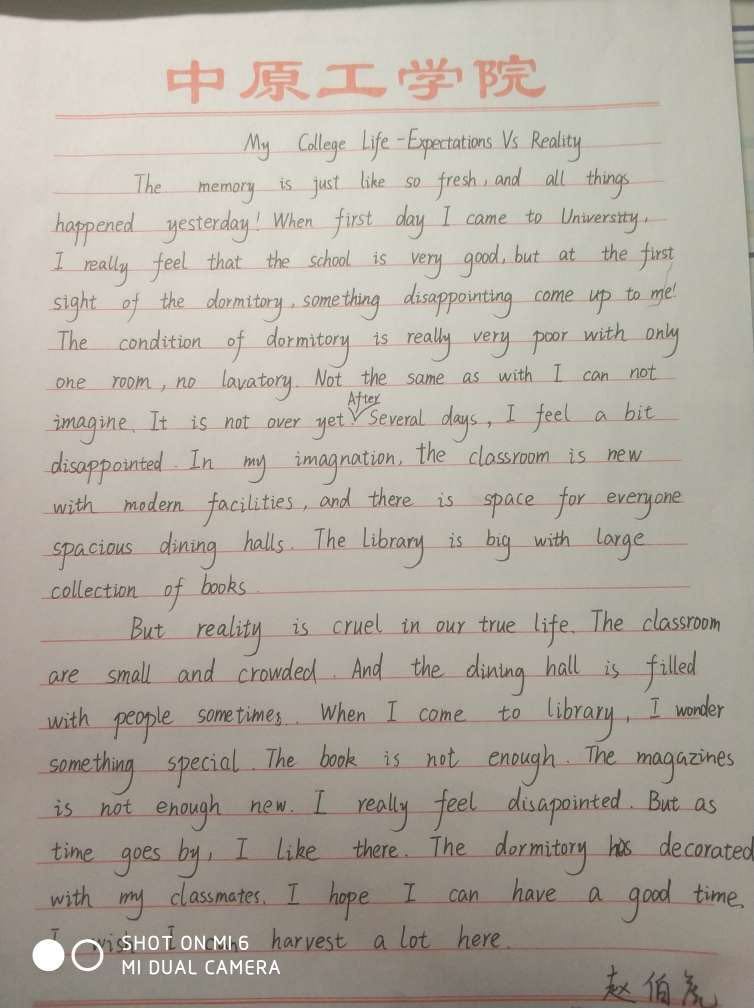 中原工学院
My College Life - Expectations Vs Reality
The memory is just like so fresh, and all things
happened yesterday! When first day I came to University,
I really feel that the school is very good, but at the first
sight of the dormitory, something disappointing come up to me!
The condition of dormitory is really very poor with only
one room, no lavatory. Not the same as with I can not
imagine. It is not over yet. After Several days, I feel a bit
disappointed. In my imagnation, the classroom is new
with modern facilities, and there is space for everyone
spacious dining halls. The library is big with large
collection of books.
But reality is cruel in our true life. The classroom
are small and crowded. And the dining hall is filled
with people sometimes. When I come to library, I wonder
something special. The book is not enough. The magazines
is not enough new. I really feel disapointed. But as
time goes by, I like there. The dormitory is decorated
with my classmates. I hope I can have a good time.
I wish I can harvest a lot here.
SHOT ON MI 6
MI DUAL CAMERA
赵伯